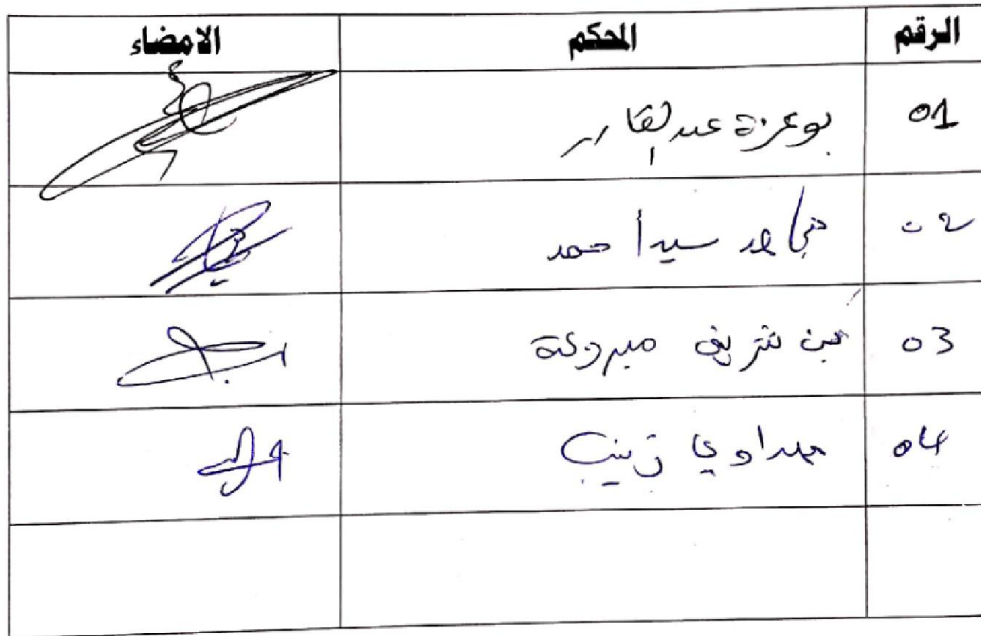 الرقم المحكم الامضاء
01 بوعزة عبد القادر
02 مجاهد سيد احمد
03 بن شريف مبروكة
04 مهداوي زينب